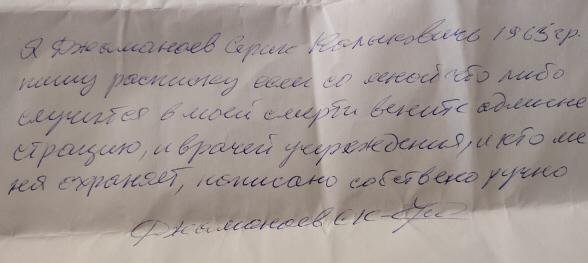 Я Джуманаев Серик Калыкович 1963 гр.
пишу расписку если со мной что либо
случится в моей смерти вените админе
страцию, и врачей учреждения, и кто ме
ня охраняет, написано собствено ручно
Джуманаев С К